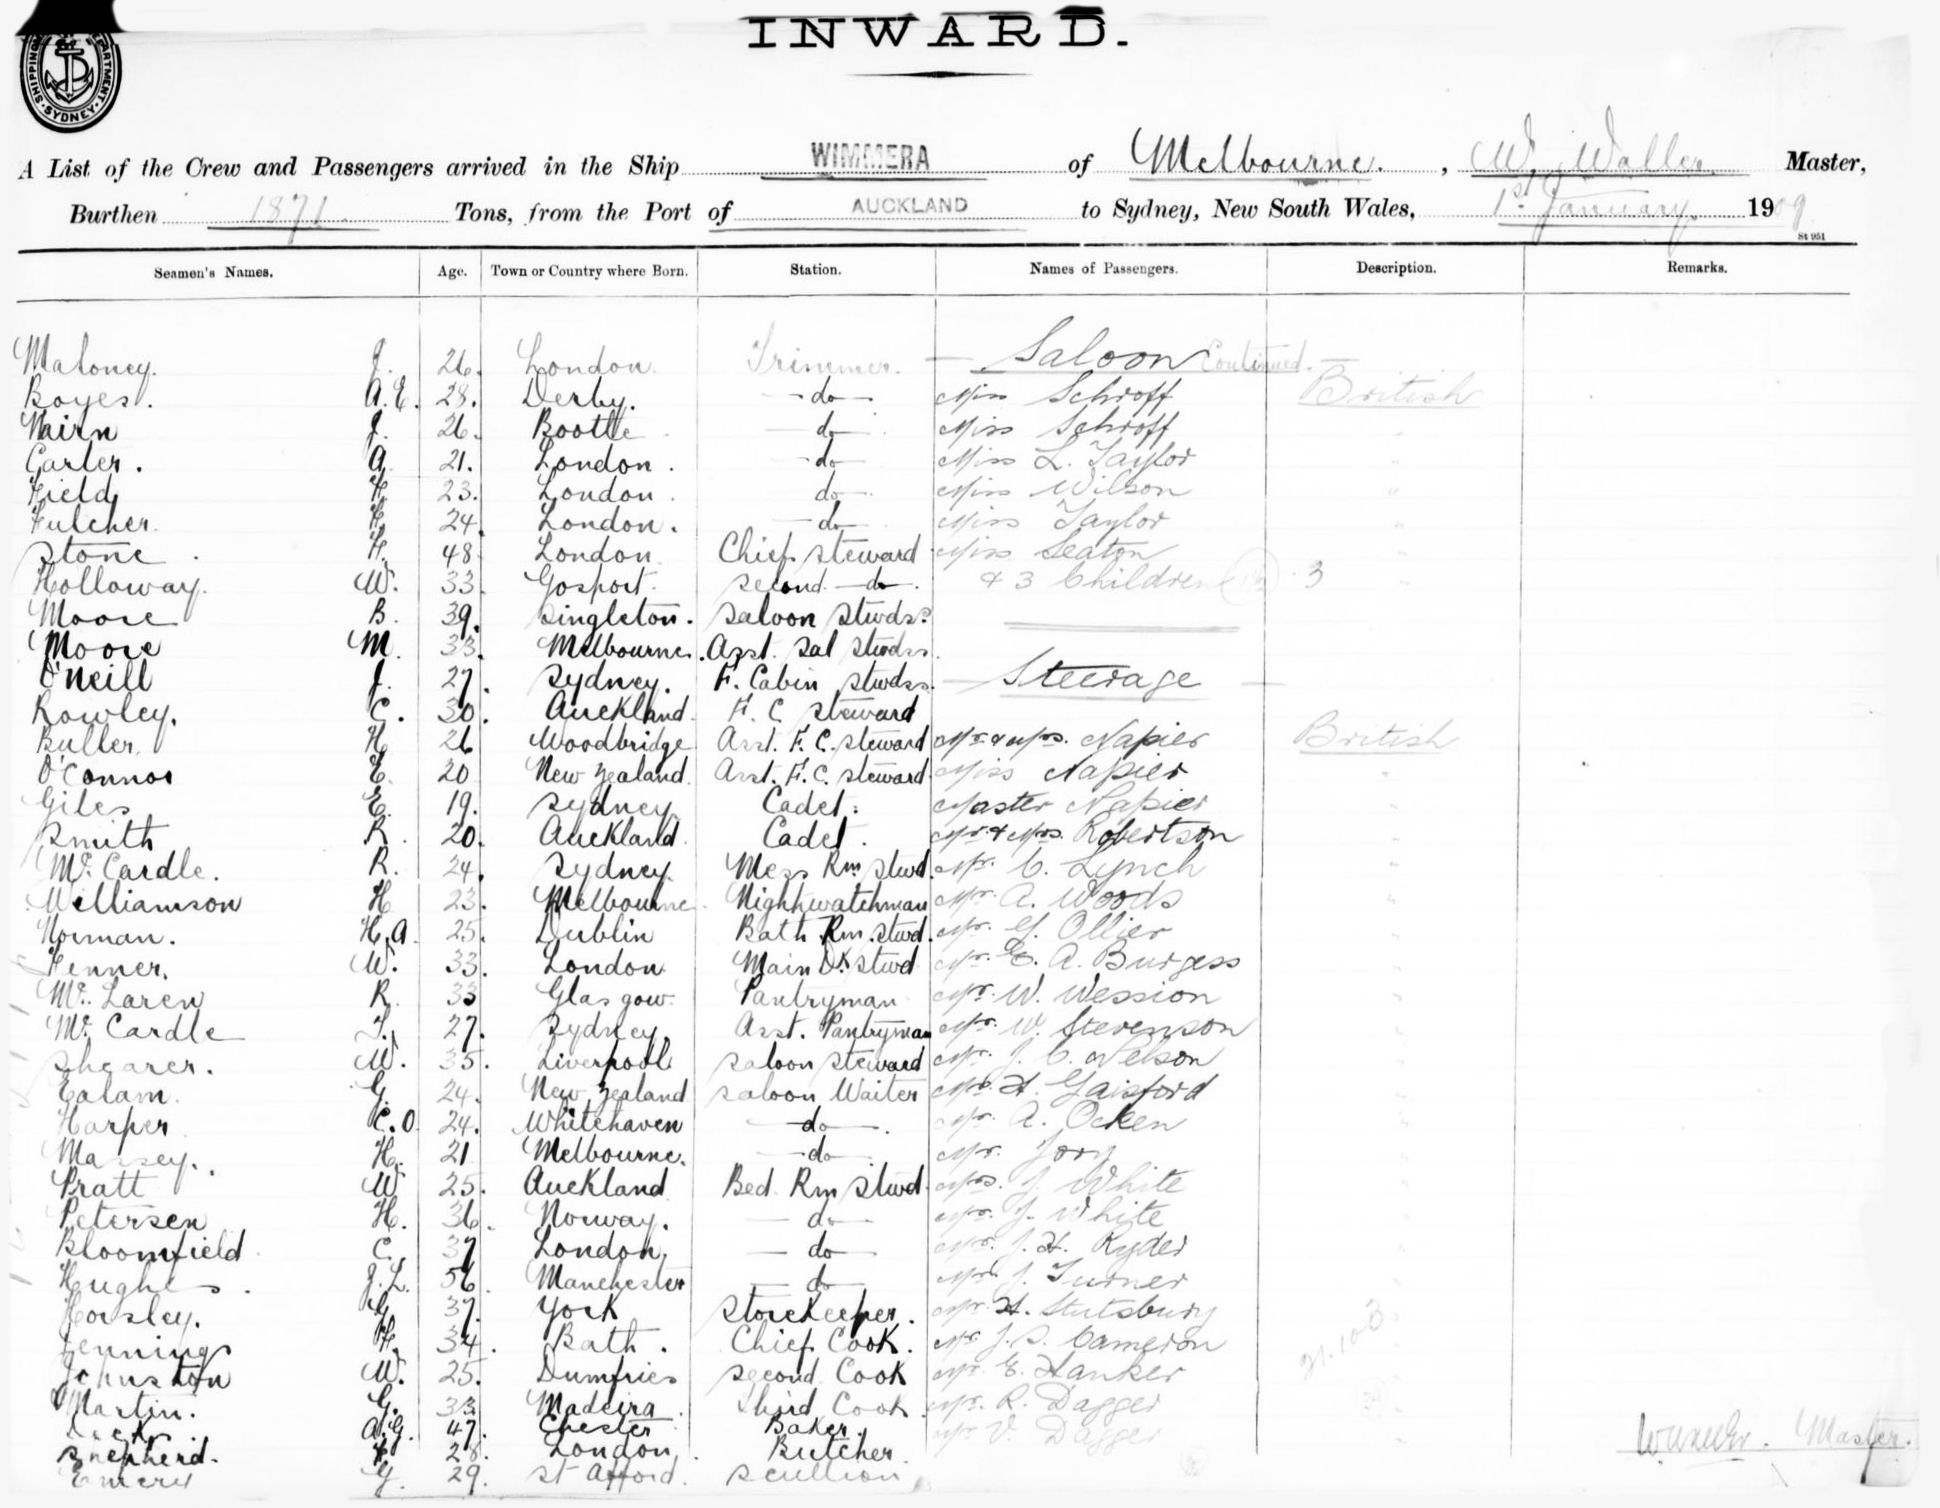 INWARD.
SHIPPING DEPARTMENT SYDNEY
A List of the Crew and Passengers arrived in the Ship WIMMERA of Melbourne. , W. Waller Master,
Burthen 1871 Tons, from the Port of AUCKLAND to Sydney, New South Wales, 1st January 1909
St 951
Seamen's Names. Age. Town or Country where Born. Station. Names of Passengers. Description. Remarks.
Maloney. J. 26. London. Trimmer. — Saloon Continued. —
Boyes. A.E. 28. Derby. do Miss Schroff British
Nairn J. 26. Bootle do Miss Schroff "
Carter. A. 21. London. do Miss L. Taylor "
Field H 23. London. do Miss Wilson "
Fulcher. 24. London. do Miss Taylor "
Stone H. 48 London Chief Steward Miss Seaton "
Holloway. W. 33. Gosport. Second do & 3 Children 3 "
Moore B. 39. Singleton. Saloon Stwdss
Moore M. 33. Melbourne. Asst. Sal Stwdss
O'Neill J. 27. Sydney. F. Cabin Stwdss. — Steerage —
Rowley. C. 30. Auckland F. C. Steward
Buller. H 26 Woodbridge Asst. F. C. Steward Mr & Mrs. Napier British
O'Connor E. 20 New Zealand. Asst. F. C. Steward Miss Napier "
Giles E. 19. Sydney Cadet. Master Napier "
Smith R. 20. Auckland Cadet. Mr & Mrs. Robertson "
McCardle. R. 24. Sydney Mess Rm Stwd. Mr. C. Lynch "
Williamson H 23. Melbourne Nightwatchman Mr. A. Woods "
Norman. H.A. 25. Dublin Bath Rm. Stwd. Mr. G. Ollier "
Fenner. W. 33. London Main Dk Stwd Mr. E. A. Burgess "
McLaren R. 33 Glasgow. Pantryman Mr. W. Wession "
McCardle T. 27. Sydney. Asst. Pantryman Mr. W. Stevenson "
Shearer. W. 35. Liverpool Saloon Steward Mr. J. C. Nelson "
Ealam. G. 24. New Zealand Saloon Waiter H. Gaisford "
Harper C.O. 24. Whitehaven do Mr. A. Ocken "
Massey. H. 21 Melbourne. do Mr. "
Pratt W 25. Auckland Bed Rm Stwd. Mrs. J White "
Petersen H. 36. Norway. do Mr. J. White "
Bloomfield C. 37 London. do Mr. J. H. Ryder "
Hughes. J.L. 56 Manchester do J. Turner "
Horsley. 37. York Storekeeper. Mr. H. Stutsbury "
Jennings H. 34. Bath. Chief Cook. Mr J. S. Cameron "
Johnston W. 25. Dumfries Second Cook Mr. E. Hanker
Martin. G. 33 Madeira. Third Cook Mr. R. Dagger
A.G. 47. Chester Baker. Mr V. Dagger
Shepherd. 28. London Butcher Master.
Emery G. 29. St Afford. Scullion